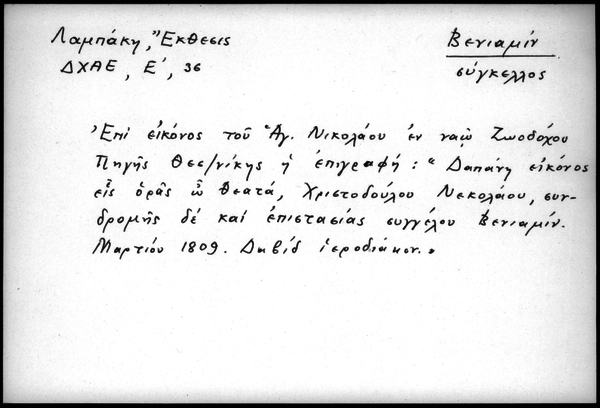 Λαμπάκη, Ἔκθεσις
ΔΧΑΕ, Ε', 36
Βενιαμίν
σύγκελλος
Ἐπί εἰκόνος τοῦ Ἁγ. Νικολάου ἐν ναῷ Ζωοδόχου
Πηγῆς Θεσ/νίκης ἡ ἐπιγραφή: "Δαπάνη εἰκόνος
εἷς ὁρᾶς ὦ θεατά, Χριστοδούλου Νεκολάου, συν-
δρομῆς δέ καί ἐπιστασίας συγγέλου Βενιαμίν.
Μαρτίου 1809. Δαβίδ ἱεροδιάκον."